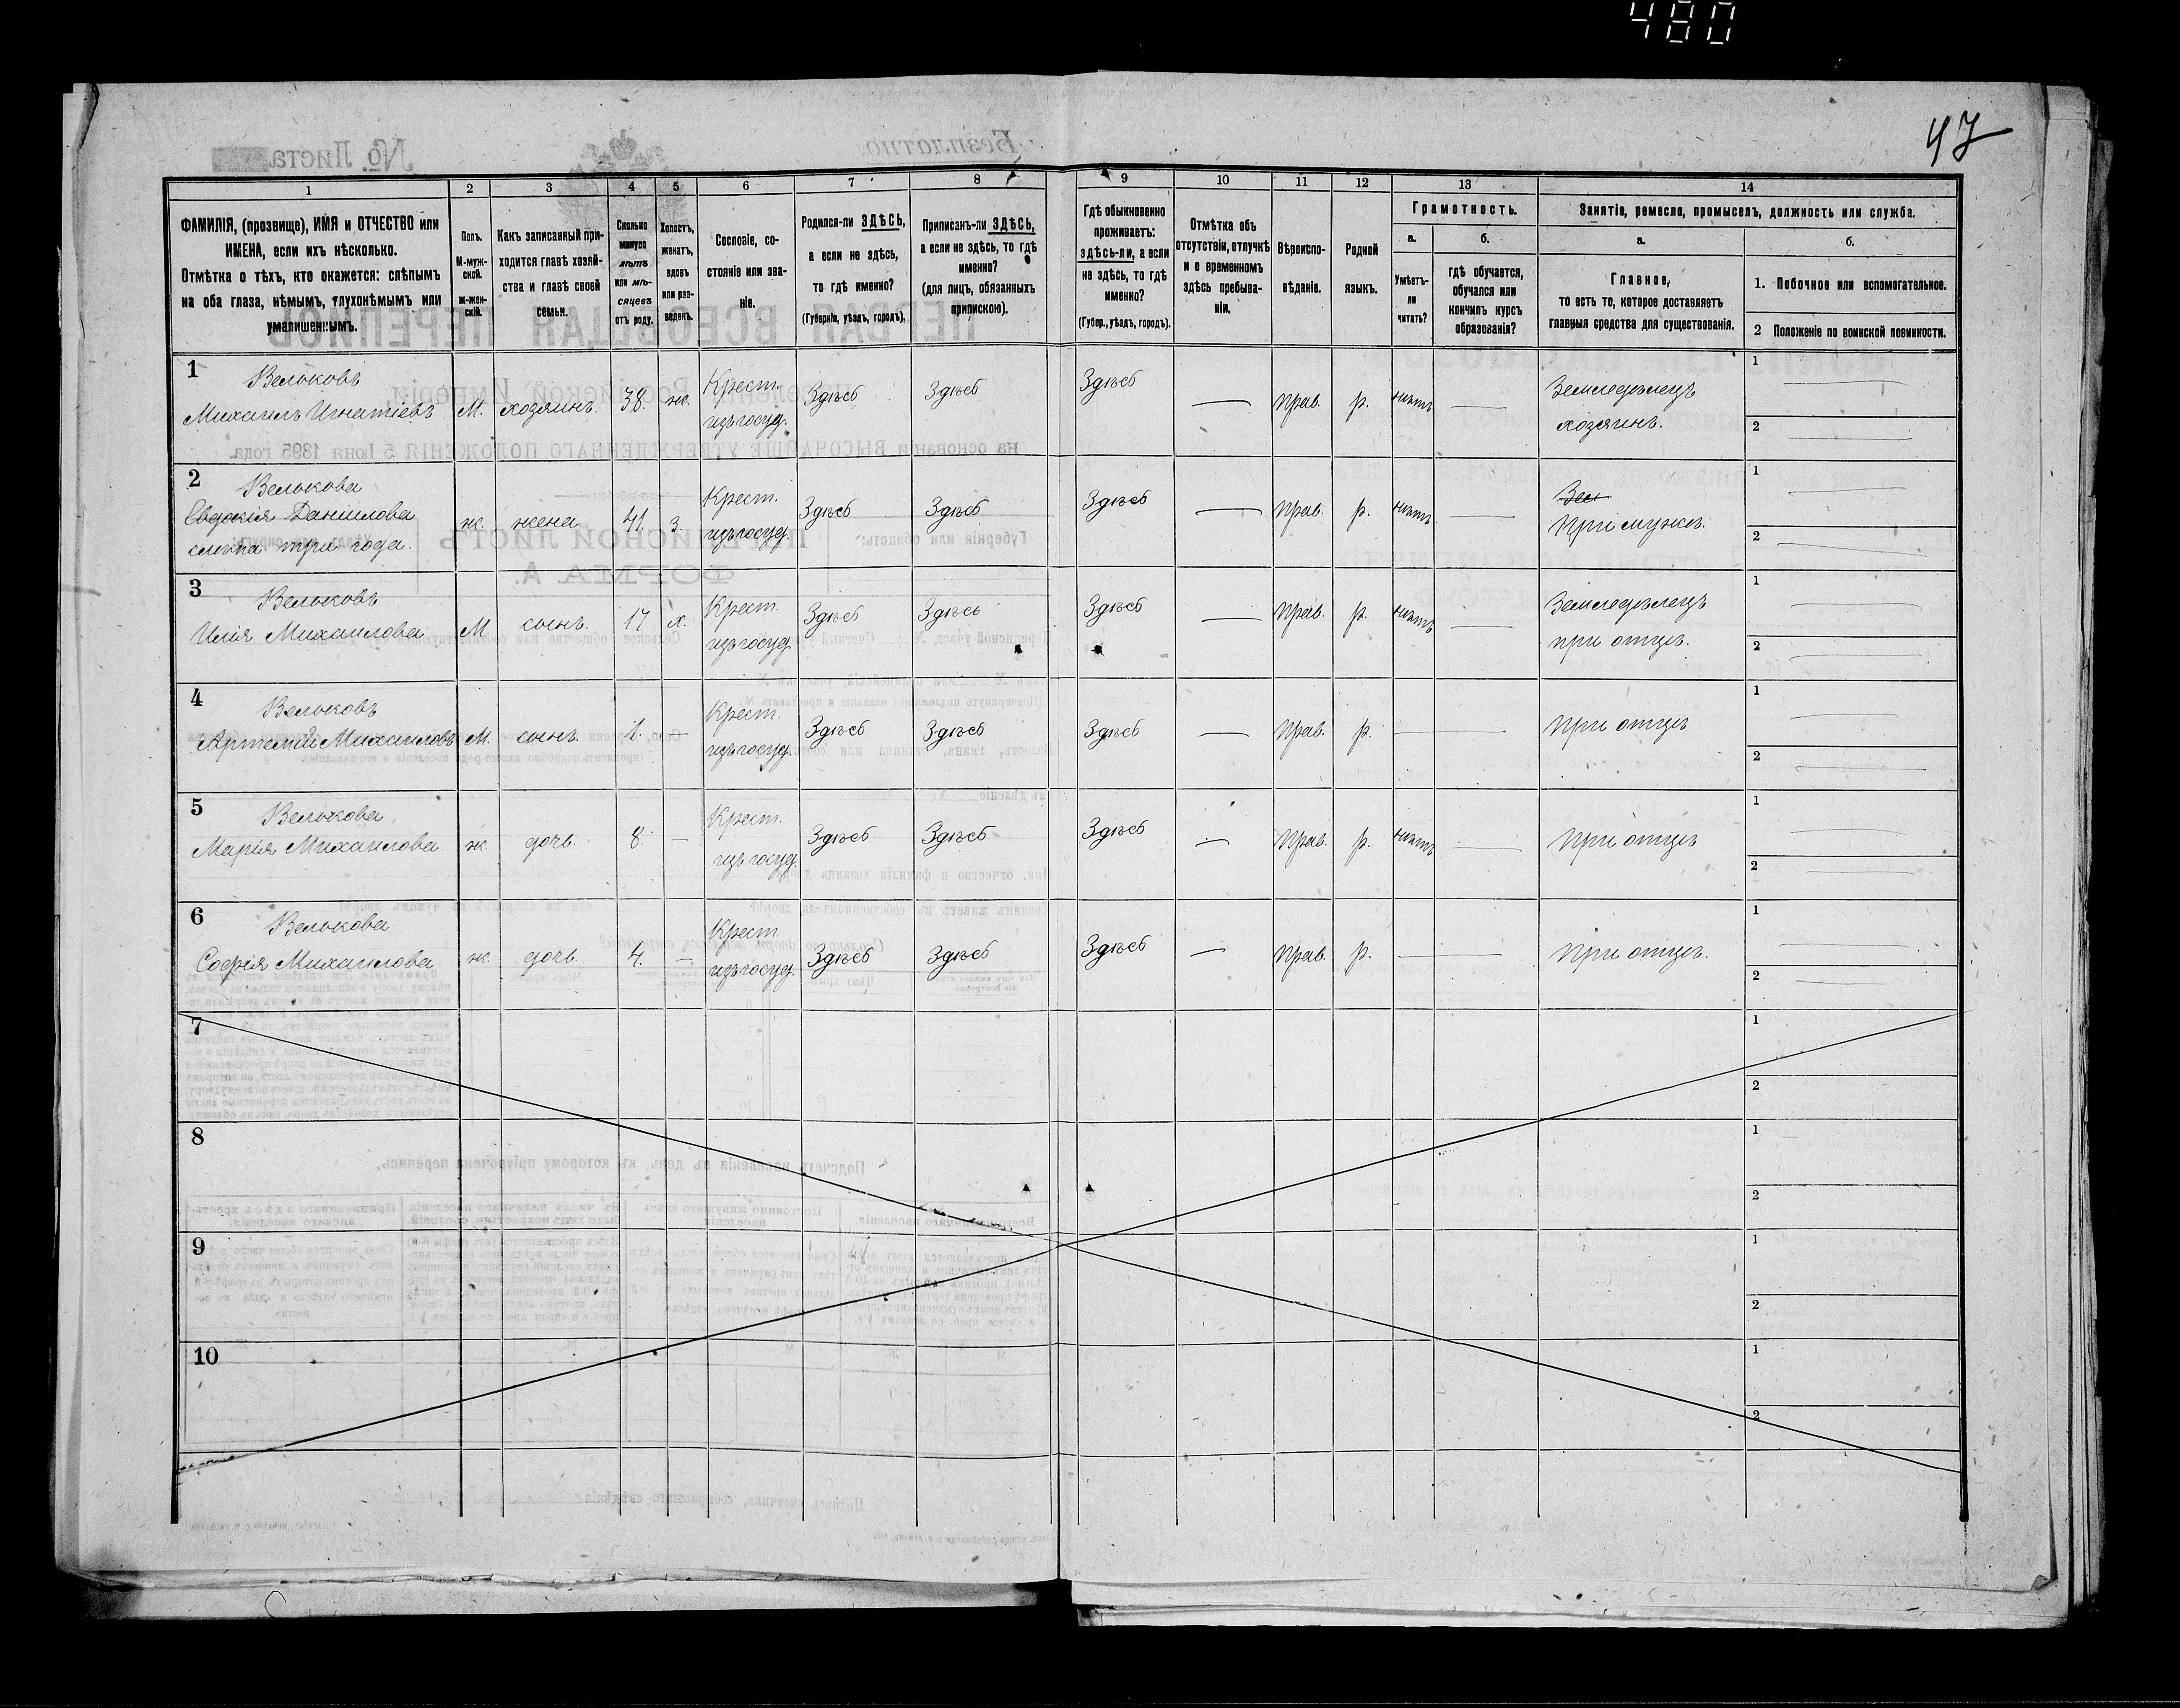 480
47
1 2 3 4 5 6 7 8 9 10 11 12 13 14
ФАМИЛІЯ, (прозвище), ИМЯ и ОТЧЕСТВО или
ИМЕНА, если ихъ нѣсколько.
Отмѣтка о тѣхъ, кто окажется: слѣпымъ
на оба глаза, нѣмымъ, глухонѣмымъ или
умалишеннымъ.
Полъ.
М-муж-
ской.
ж-жен-
скій.
Какъ записанный при-
ходится главѣ хозяй-
ства и главѣ своей
семьи.
Сколько
минуло
лѣтъ
или мѣ-
сяцевъ
отъ роду.
Холостъ,
женатъ,
вдовъ
или раз-
веденъ.
Сословіе, со-
стояніе или зва-
ніе.
Родился-ли ЗДѢСЬ,
а если не здѣсь,
то гдѣ именно?
(Губернія, уѣздъ, городъ).
Приписанъ-ли ЗДѢСЬ,
а если не здѣсь, то гдѣ
именно?
(для лицъ, обязанныхъ
припискою).
Гдѣ обыкновенно
проживаетъ:
здѣсь-ли, а если
не здѣсь, то гдѣ
именно?
(Губер., уѣздъ, городъ).
Отмѣтка объ
отсутствіи, отлучкѣ
и о временномъ
здѣсь пребыва-
ніи.
Вѣроиспо-
вѣданіе.
Родной
языкъ.
Грамотность.
а.
Умѣетъ-
ли
читать?
б.
гдѣ обучается,
обучался или
кончилъ курсъ
образованія?
Занятіе, ремесло, промыселъ, должность или служба.
а.
Главное,
то есть то, которое доставляетъ
главныя средства для существованія.
б.
1. Побочное или вспомогательное.
2 Положеніе по воинской повинности.
1
Велюковъ
Михаилъ Игнатіевъ М. хозяинъ. 38. ж. Крест. изъ госуд. Здѣсь Здѣсь Здѣсь — прав. р. нѣтъ — Земледѣлецъ хозяинъ.
1
2
2
Велюкова
Евдокія Данилова
слѣпа три года. ж. жена 41. з. Крест. изъ госуд. Здѣсь Здѣсь Здѣсь — прав. р. нѣтъ — Зем При мужѣ.
1
2
3
Велюковъ
Илія Михаилова М сынъ. 17 х. Крест. изъ госуд. Здѣсь Здѣсь Здѣсь — прав. р. нѣтъ — Земледѣлецъ при отцѣ.
1
2
4
Велюковъ
Артемій Михаиловъ М. сынъ. 1. — Крест. изъ госуд. Здѣсь Здѣсь Здѣсь — прав. р. — При отцѣ
1
2
5
Велюкова
Марія Михаилова. ж. дочь. 8. — Крест. изъ госуд. Здѣсь Здѣсь Здѣсь — прав. р. нѣтъ — При отцѣ
1
2
6
Велюкова
Софія Михаилова ж. дочь. 4. — Крест. изъ госуд. Здѣсь Здѣсь Здѣсь — прав. р. — При отцѣ.
1
2
7
1
2
8
1
2
9
1
2
10
1
2